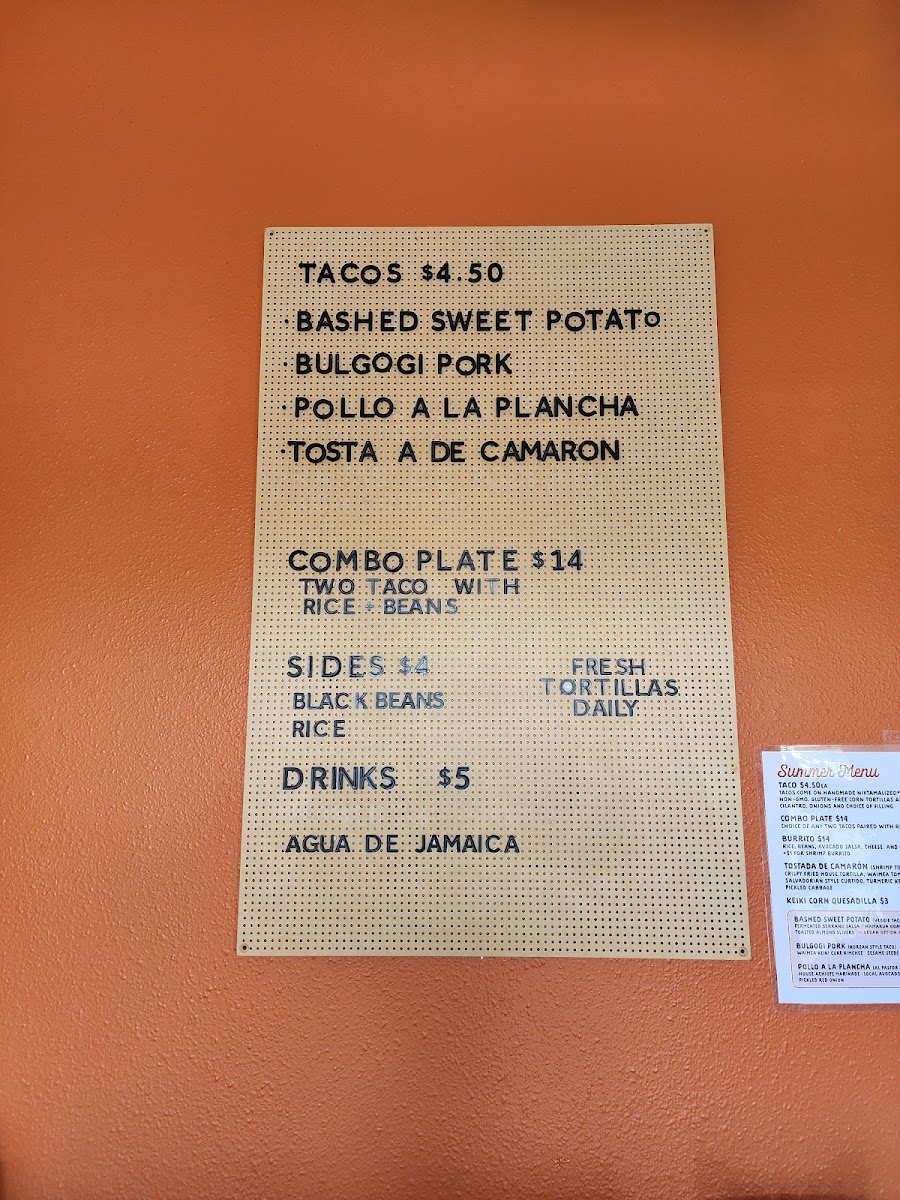 TACOS $4.50
·BASHED SWEET POTATO
·BULGOGI PORK
·POLLO A LA PLANCHA
·TOSTA A DE CAMARON
COMBO PLATE $14
TWO TACO WITH
RICE + BEANS
SIDES $4
BLACK BEANS
RICE
FRESH
TORTILLAS
DAILY
DRINKS $5
AGUA DE JAMAICA
Summer Menu
TACO $4.50EA
TACOS COME ON HANDMADE NIXTAMALIZED
NON-GMO, GLUTEN-FREE CORN TORTILLAS
CILANTRO, ONIONS AND CHOICE OF FILLING
COMBO PLATE $14
CHOICE OF ANY TWO TACOS PAIRED WITH
BURRITO $14
RICE, BEANS, AVOCADO SALSA, CHEESE, AND
+$1 FOR SHRIMP BURRITO
TOSTADA DE CAMARÓN (SHRIMP
CRISPY FRIED HOUSE TORTILLA, WAIMEA
SALVADORIAN STYLE CURTIDO, TURMERIC
PICKLED CABBAGE
KEIKI CORN QUESADILLA $3
BASHED SWEET POTATO (VEGGIE
FERMENTED SERRANO SALSA · HAMAKUA
TOASTED ALMOND SLIVERS · VEGAN OPTION
BULGOGI PORK (KOREAN STYLE TACO)
WAIMEA KOJI CUKE KIMCHEE · SESAME SEEDS
POLLO A LA PLANCHA (AL PASTOR
HOUSE ACHIOTE MARINADE · LOCAL AVOCADO
PICKLED RED ONION